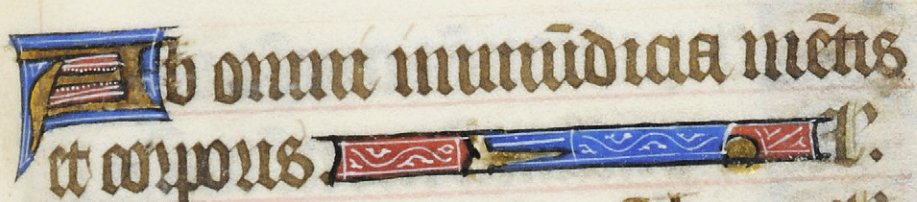 Ab omni inmūdicia mētis
et corporis. l'.